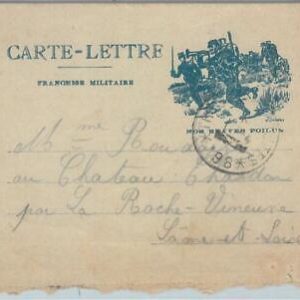 CARTE-LETTRE
FRANCHISE MILITAIRE
NOS BRAVES POILUS
Mme
au Chateau
par La Roche-Vineuse
Saône et Loire
98